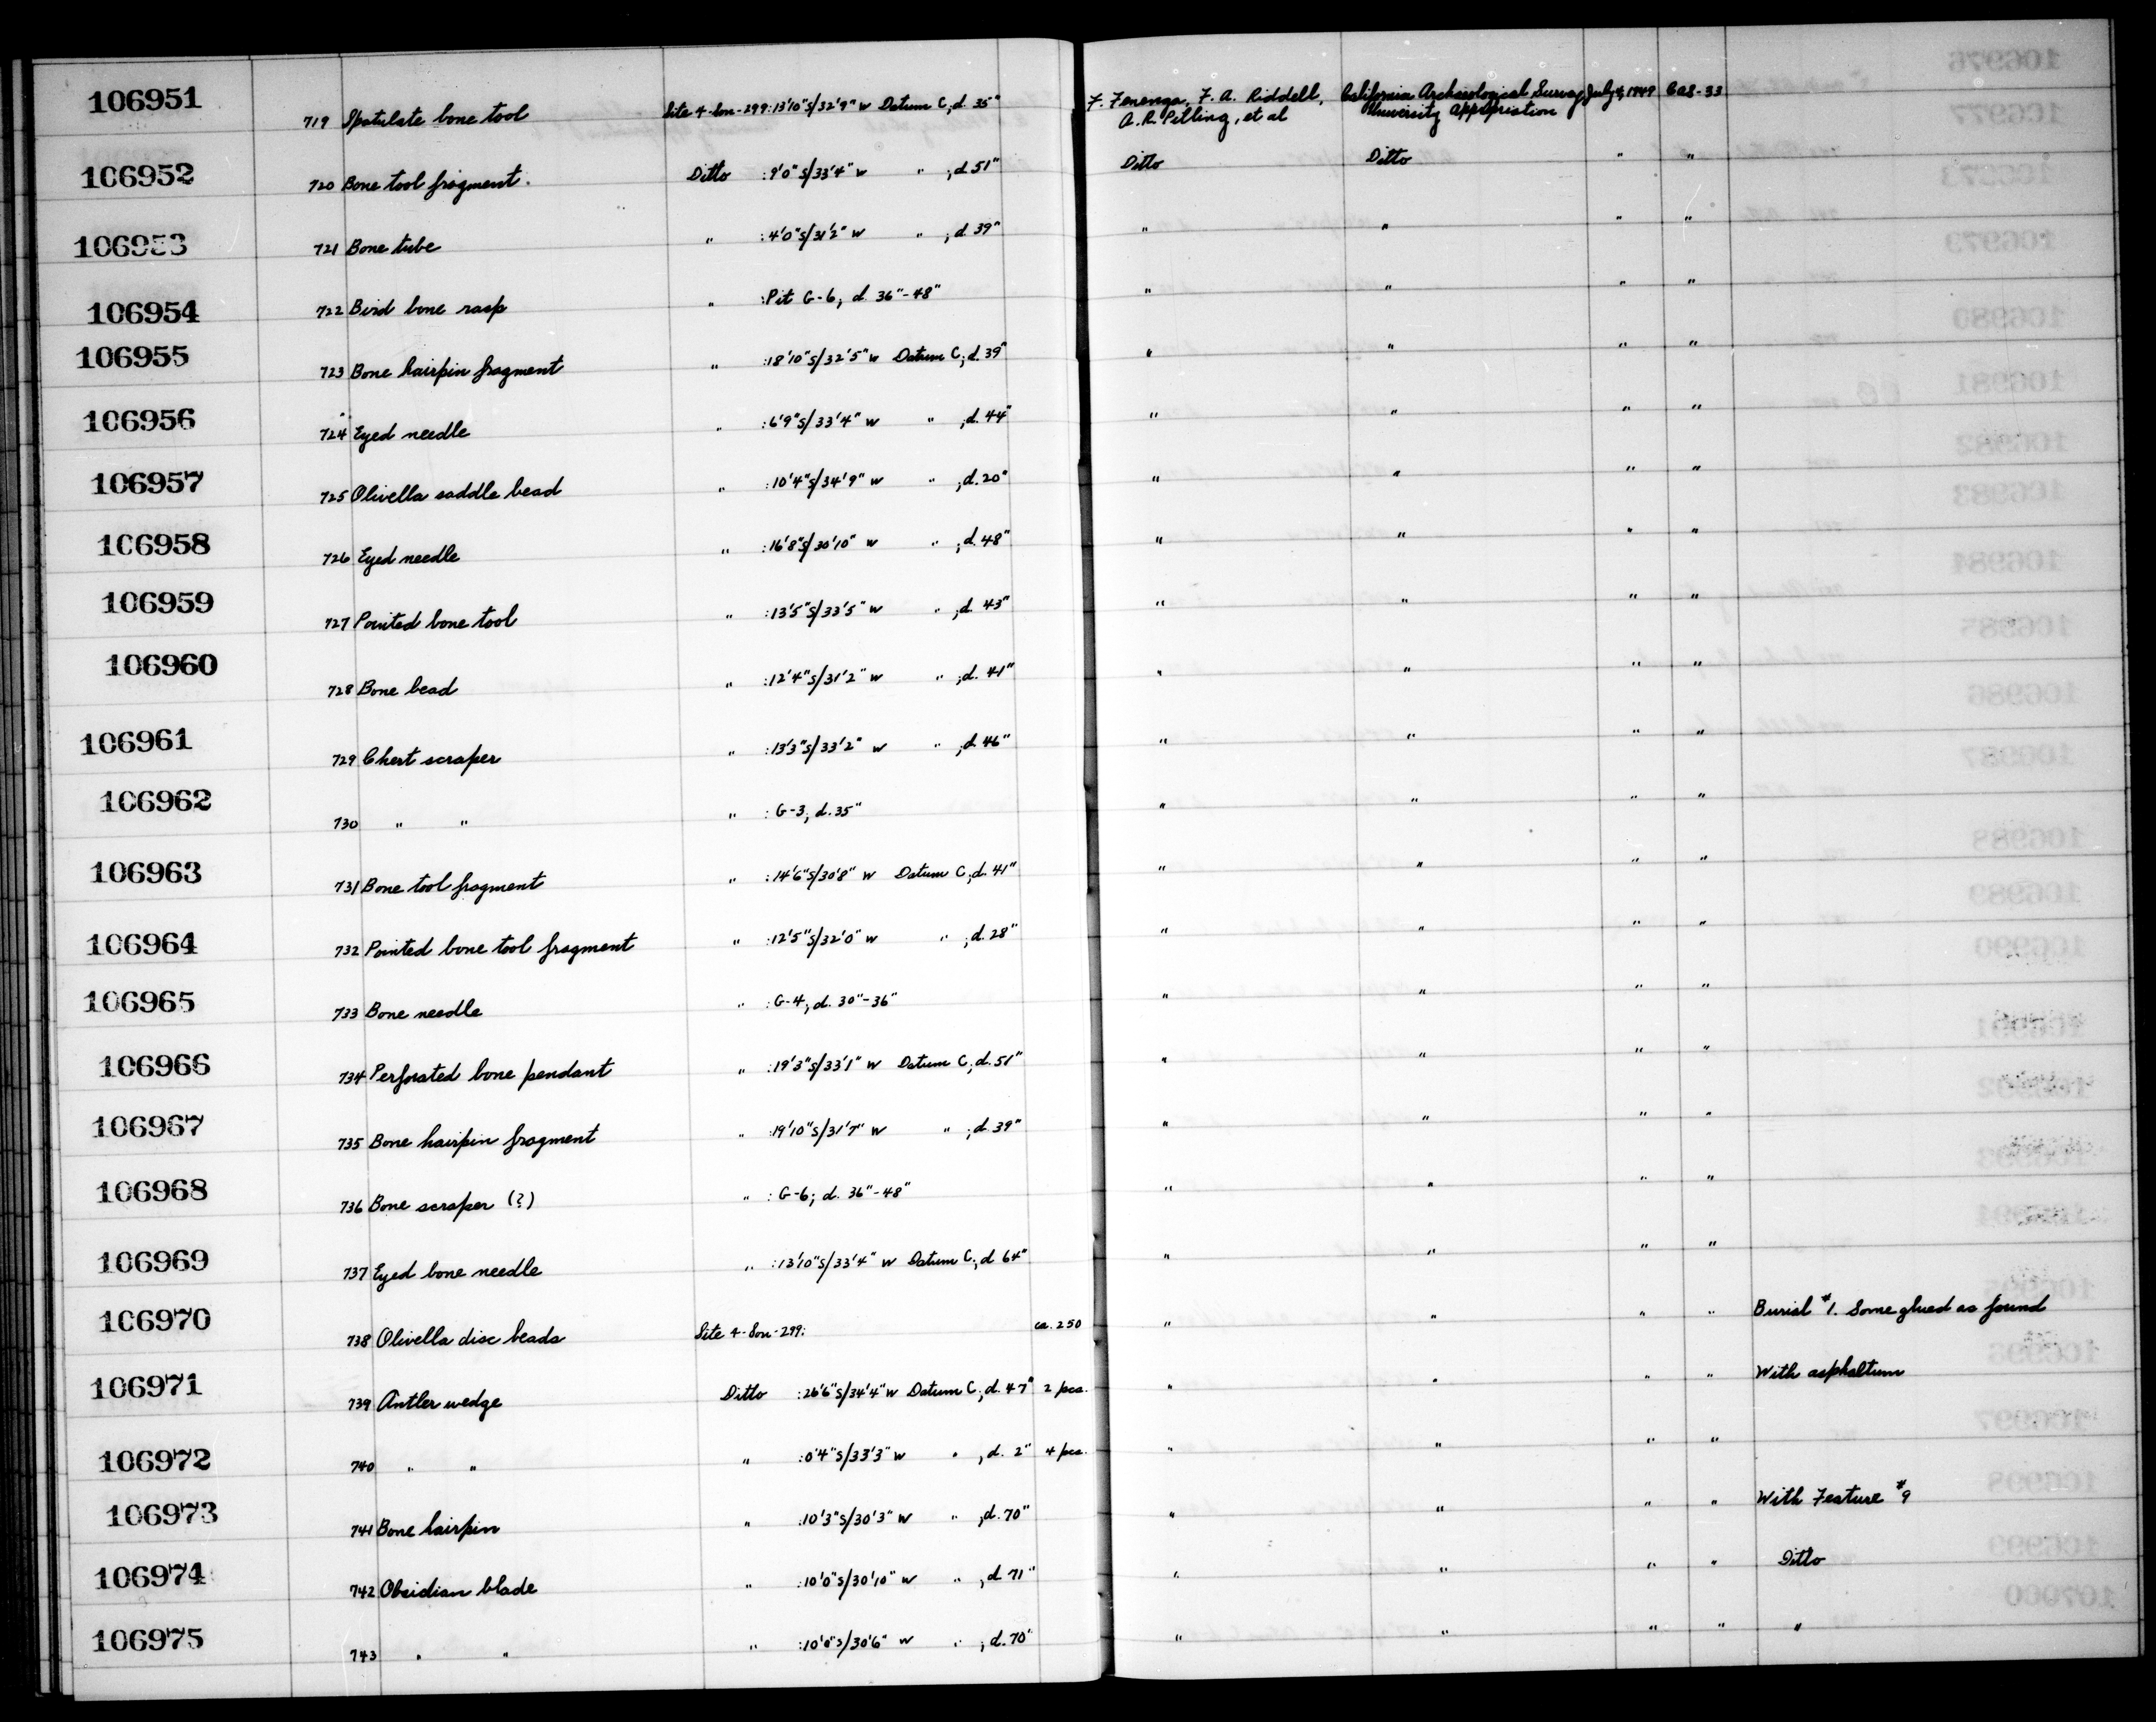 106951 719 Spatulate bone tool Site 4-Son-299: 13'10"S/32'9" W Datum C; d. 35" F. Fenenga, F. A. Riddell, California Archaeological Survey July 4, 1949 CAS-33
A. R. Pilling, et al University Appropriation
106952 720 Bone tool fragment. Ditto : 9'0"S/33'4" W " ; d 51" Ditto Ditto " "
106953 721 Bone tube " : 4'0"S/31'2" W " ; d 39" " " " "
106954 722 Bird bone rasp " : Pit G-6; d. 36"-48" " " " "
106955 723 Bone hairpin fragment " : 18'10"S/32'5" W Datum C; d. 39" " " " "
106956 724 Eyed needle " : 6'9"S/33'4" W " ; d. 44" " " " "
106957 725 Olivella saddle bead " : 10'4"S/34'9" W " ; d. 20" " " " "
106958 726 Eyed needle " : 16'8"S/30'10" W " ; d. 48" " " " "
106959 727 Pointed bone tool " : 13'5"S/33'5" W " ; d. 43" " " " "
106960 728 Bone bead " : 12'4"S/31'2" W " ; d. 41" " " " "
106961 729 Chert scraper " : 13'3"S/33'2" W " ; d. 46" " " " "
106962 730 " " " : G-3; d. 35" " " " "
106963 731 Bone tool fragment " : 14'6"S/30'8" W Datum C; d. 41" " " " "
106964 732 Pointed bone tool fragment " : 12'5"S/32'0" W " ; d. 28" " " " "
106965 733 Bone needle " : G-4; d. 30"-36" " " " "
106966 734 Perforated bone pendant " : 19'3"S/33'1" W Datum C; d. 51" " " " "
106967 735 Bone hairpin fragment " : 19'10"S/31'7" W " ; d. 39" " " " "
106968 736 Bone scraper (?) " : G-6; d. 36"-48" " " " "
106969 737 Eyed bone needle " : 13'10"S/33'4" W Datum C; d 64" " " " "
106970 738 Olivella disc beads Site 4-Son-299: ca. 250 " " " " Burial #1. Some glued as found
106971 739 Antler wedge Ditto : 26'6"S/34'4" W Datum C; d. 47" 2 pcs. " " " " With asphaltum
106972 740 " " " : 0'4"S/33'3" W " ; d. 2" 4 pcs. " " " "
106973 741 Bone hairpin " : 10'3"S/30'3" W " ; d. 70" " " " " With Feature #9
106974 742 Obsidian blade " : 10'0"S/30'10" W " ; d. 71" " " " " Ditto
106975 743 " " " : 10'0"S/30'6" W " ; d. 70" " " " " "